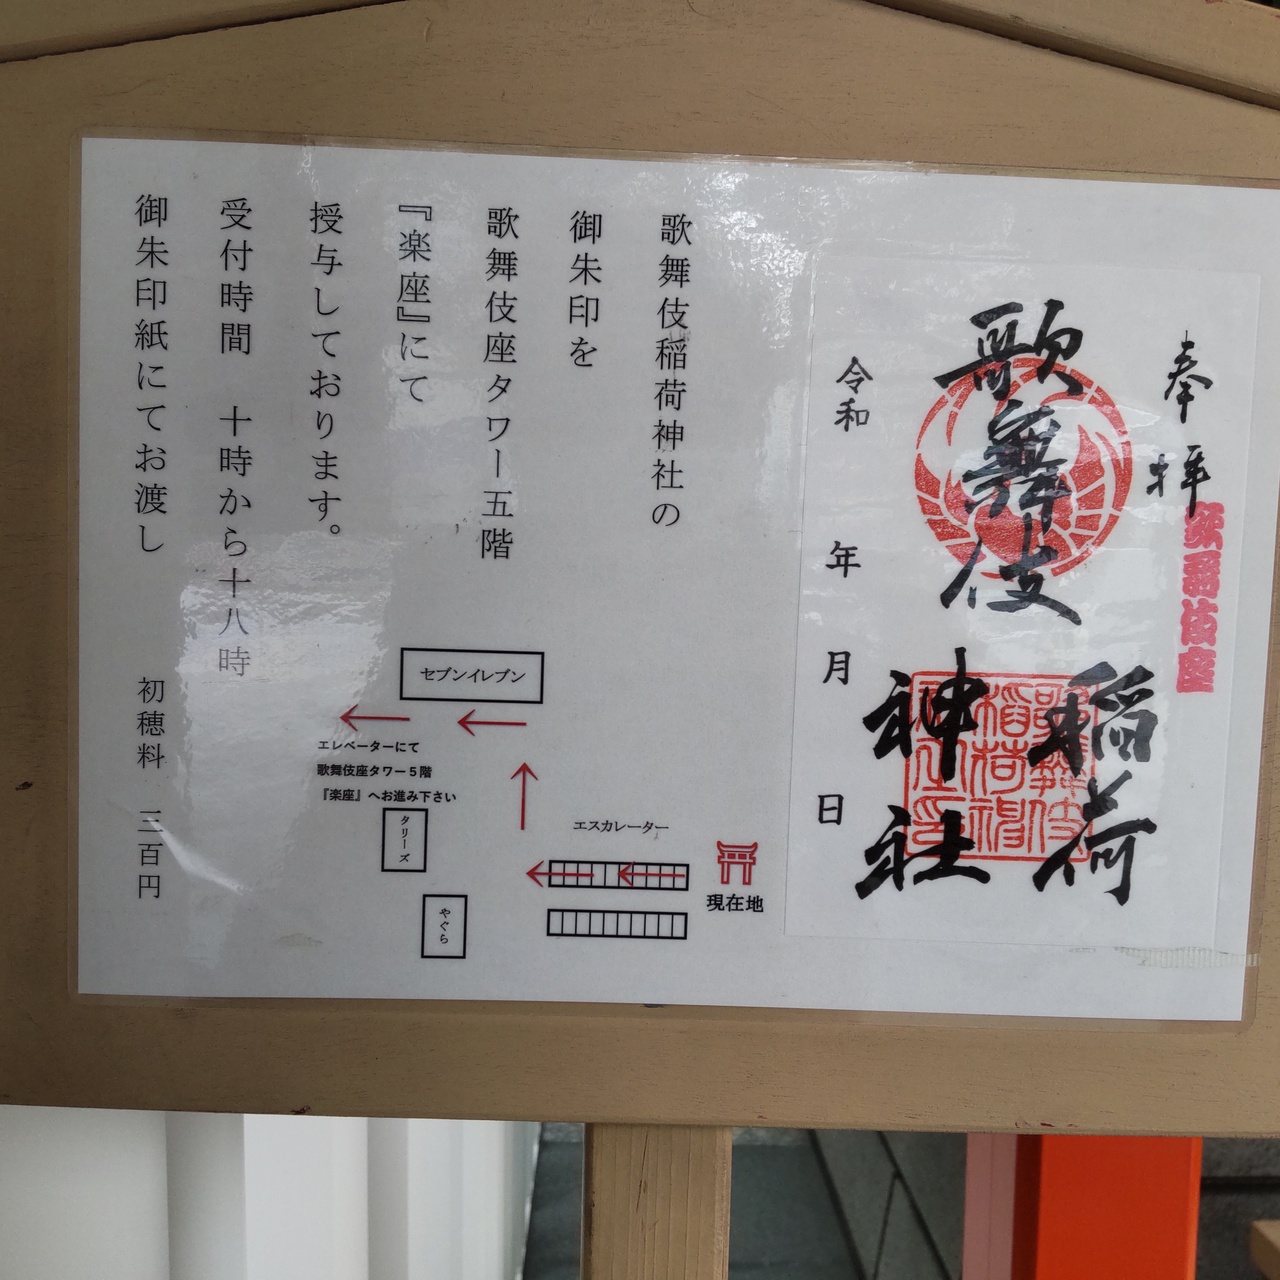 奉拝
歌舞伎座
歌舞伎
稲荷
神社
令和 年 月 日
歌舞伎稲荷神社の
御朱印を
歌舞伎座タワー五階
『楽座』にて
授与しております。
受付時間 十時から十八時
御朱印紙にてお渡し 初穂料 三百円
セブンイレブン
エレベーターにて
歌舞伎座タワー5階
『楽座』へお進み下さい
タリーズ
やぐら
エスカレーター
現在地